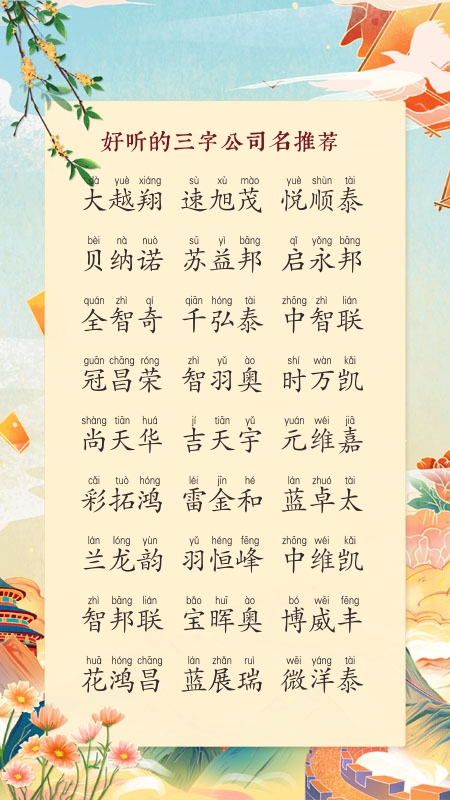 好听的三字公司名推荐
dà yuè xiáng sù xù mào yuè shùn tài
大越翔 速旭茂 悦顺泰
bèi nà nuò sū yì bāng qǐ yǒng bāng
贝纳诺 苏益邦 启永邦
quán zhì qí qiān hóng tài zhōng zhì lián
全智奇 千弘泰 中智联
guān chāng róng zhì yǔ ào shí wàn kǎi
冠昌荣 智羽奥 时万凯
shàng tiān huá jí tiān yǔ yuán wéi jiā
尚天华 吉天宇 元维嘉
cǎi tuò hóng léi jīn hé lán zhuó tài
彩拓鸿 雷金和 蓝卓太
lán lóng yùn yǔ héng fēng zhōng wéi kǎi
兰龙韵 羽恒峰 中维凯
zhì bāng lián bǎo huī ào bó wēi fēng
智邦联 宝晖奥 博威丰
huā hóng chāng lán zhǎn ruì wēi yáng tài
花鸿昌 蓝展瑞 微洋泰